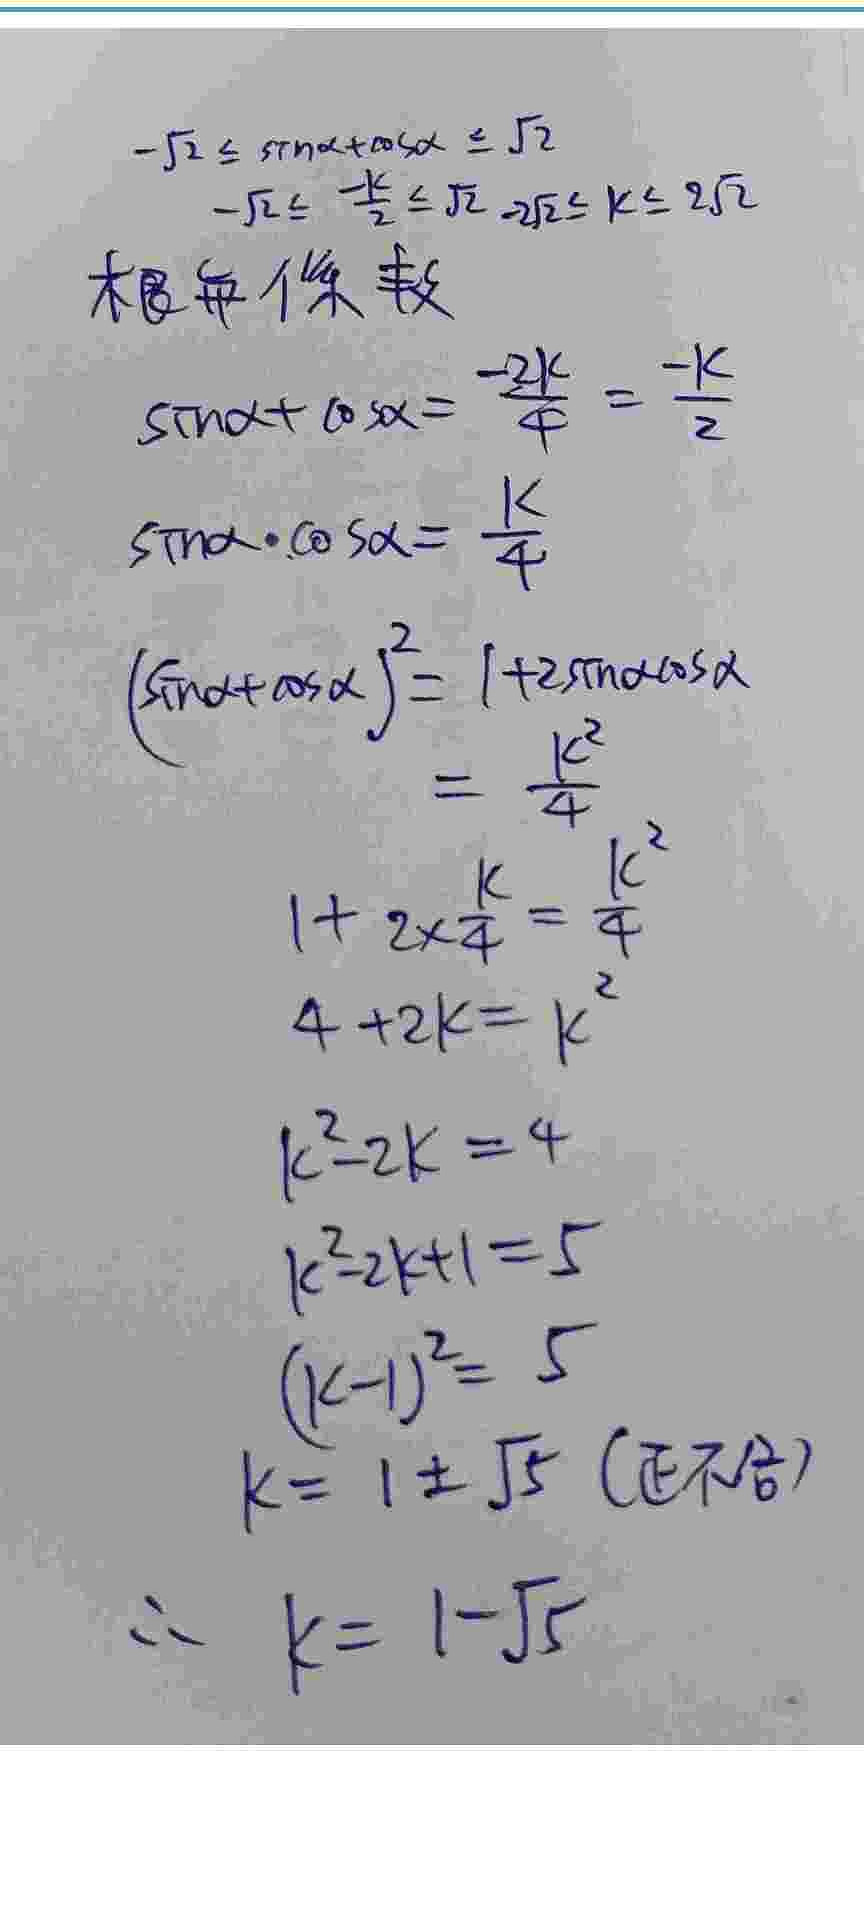 -√2 ≤ sinα+cosα ≤ √2
-√2 ≤ -k/2 ≤ √2 -2√2 ≤ k ≤ 2√2
根与係数
sinα+cosα = -2k/4 = -k/2
sinα・cosα = k/4
(sinα+cosα)² = 1+2sinαcosα
= k²/4
1+2×k/4 = k²/4
4+2k = k²
k²-2k = 4
k²-2k+1 = 5
(k-1)² = 5
k = 1±√5 (正不合)
∴ k = 1-√5